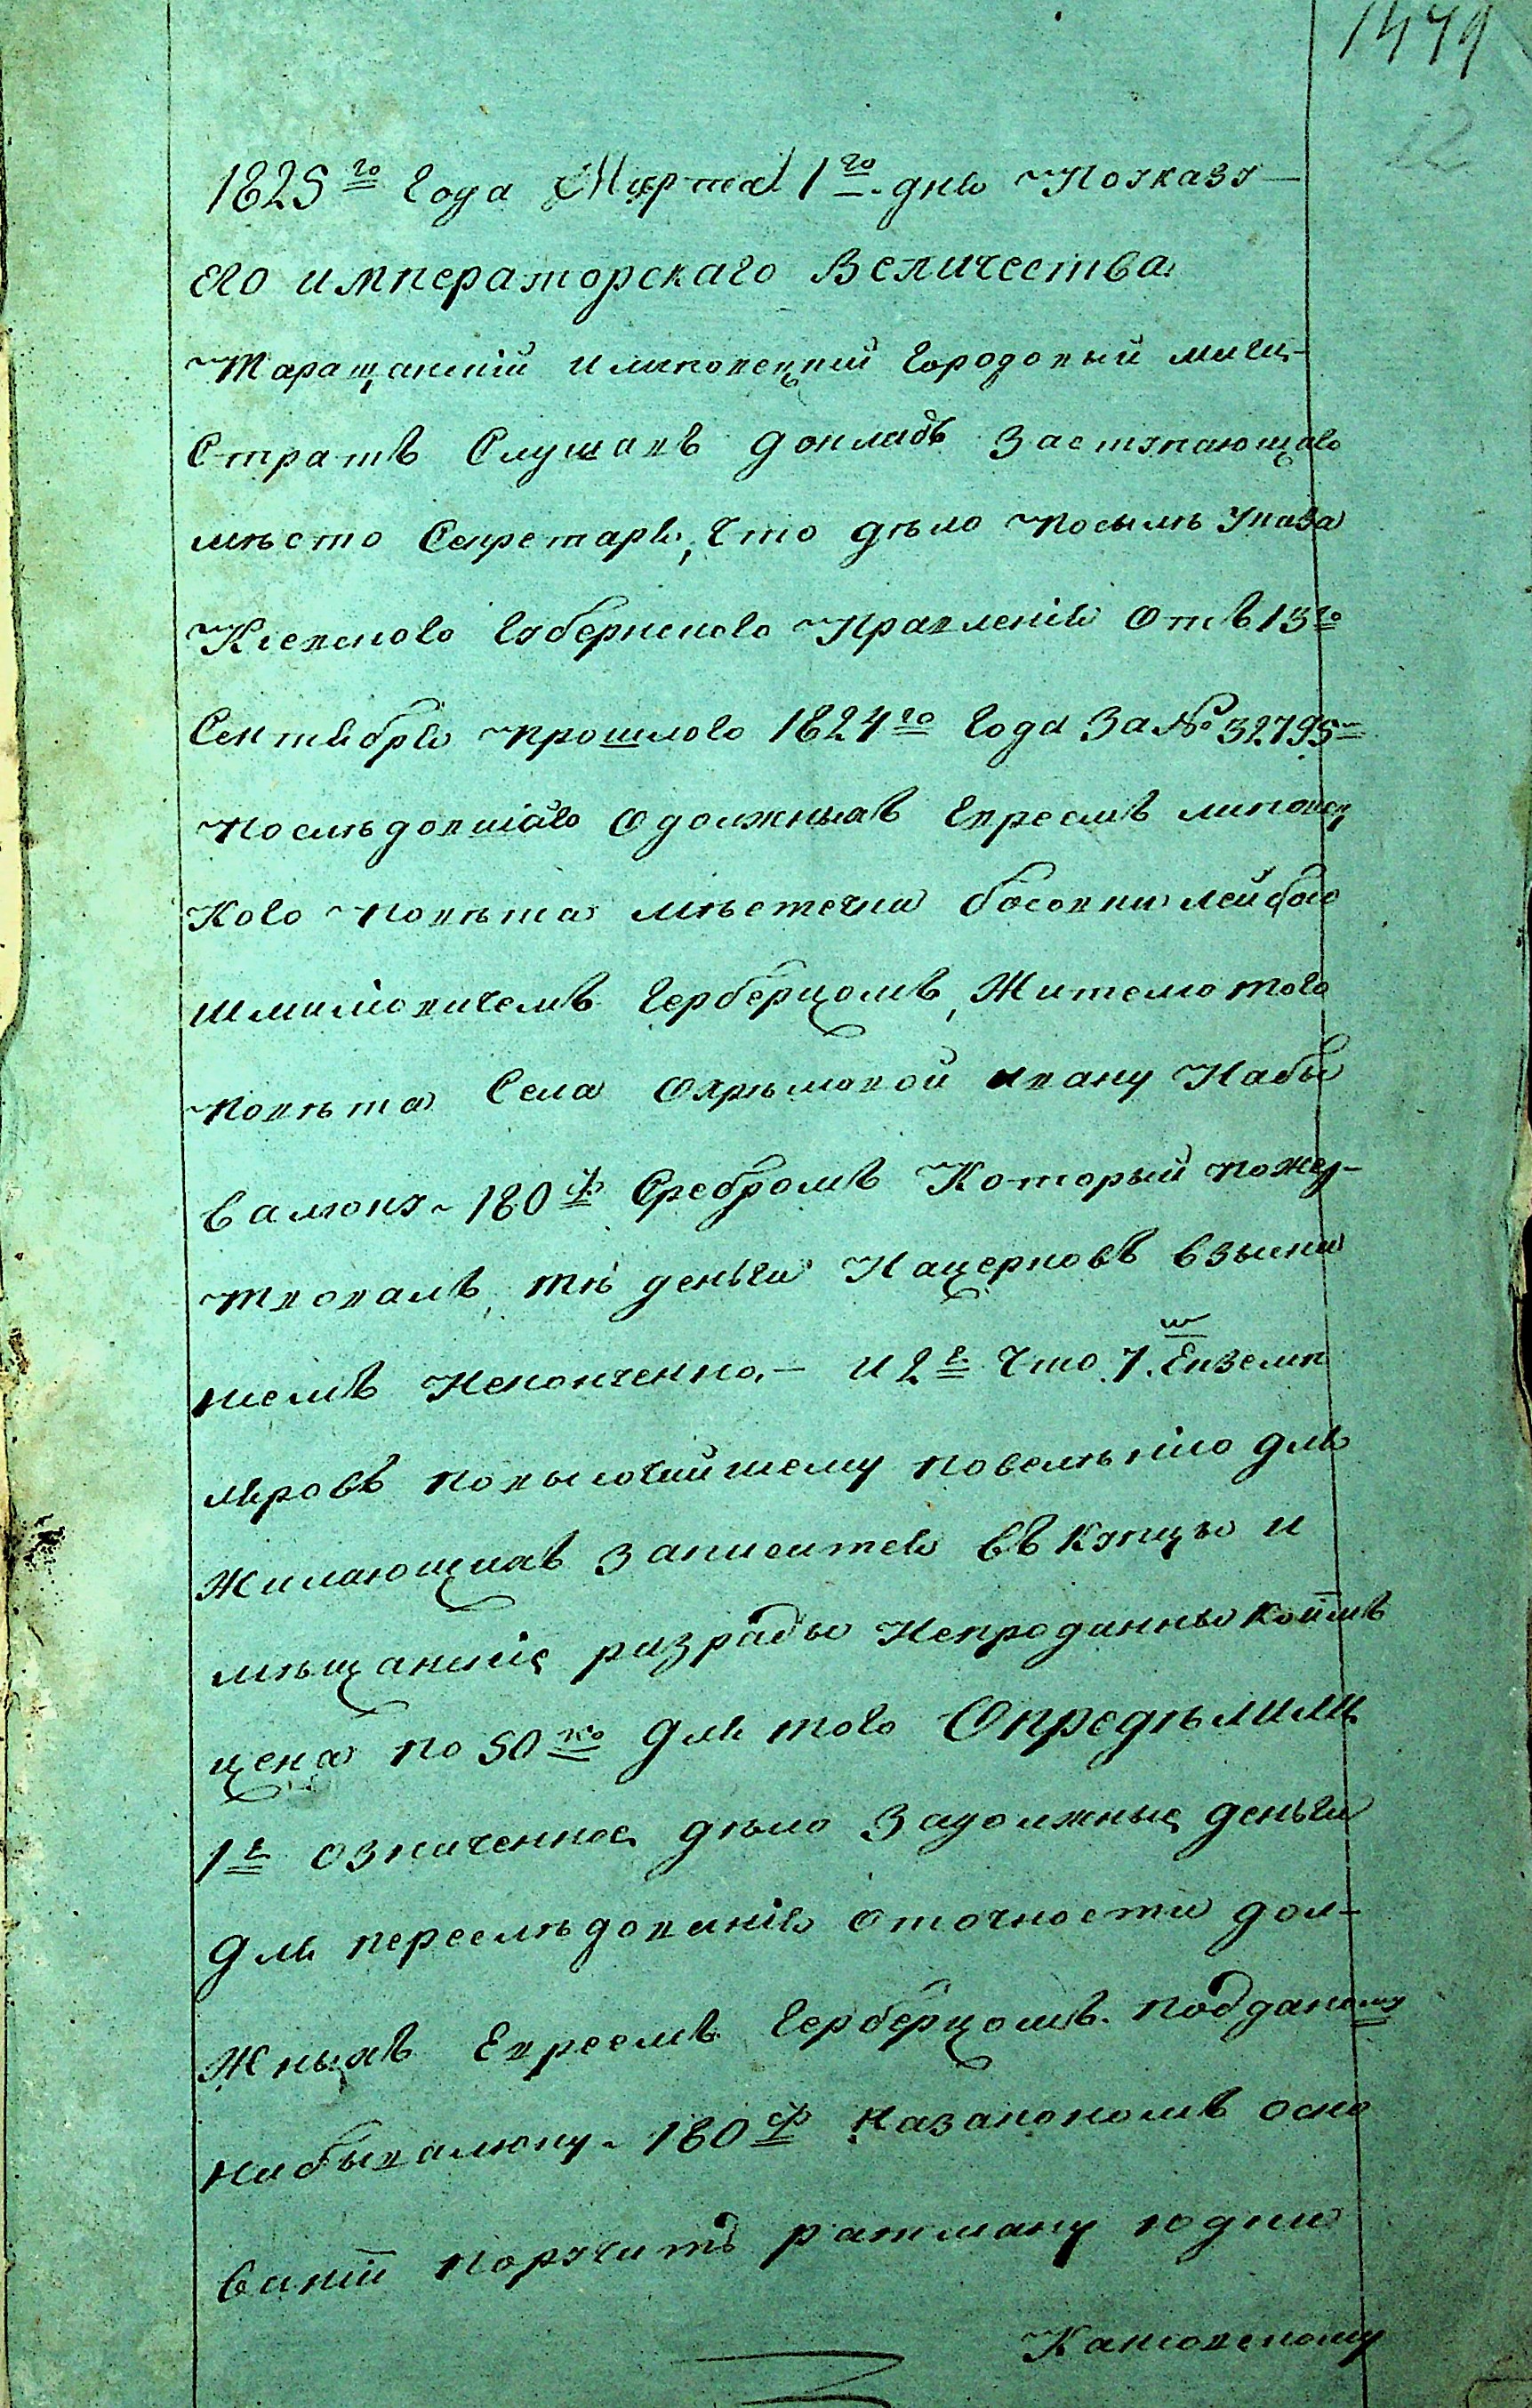 1479
12
1825го Года Марта 1го дня Поуказу
ЕГО ИМПЕРАТОРСКАГО ВЕЛИЧЕСТВА
Таращанский и липовецкий Городовый маги-
Стратъ Слушавъ докладъ Заступающаго
мѣсто Секретаря, Что дѣло Посылѣ Указа
Киевскаго Губернскаго Правленія Отъ 13го
Сентября прошлаго 1824го Года За № 32795м
Послѣдовшаго О должныхъ Евреемъ липовец
Каго Повѣта мѣстечка босовки лейбою
Шмилiовичемъ Герберцомъ, Жителю того
Повѣта Села Охрѣмовой ивану Набы
валюку 180 Сребромъ Который пожер-
твовалъ тѣ деньги Нацерковъ взыска
ніемъ Неконченно, — и 2е Что 7. Екземп
ляровъ повысочайшему повелѣнію для
Жилающихъ записатся въ Купцы и
мѣщанскіе разряды Непроданны коимъ
цена по 50 ко Для того Опредѣлили
1е означенное дѣло Задолжные деньги
Для переслѣдованія оточности дол-
Жныхъ Евреемъ Герберцомъ подданому
Набывалюку 180 Назакономъ осно
ваніи поручить ратману юдки
Каневскому